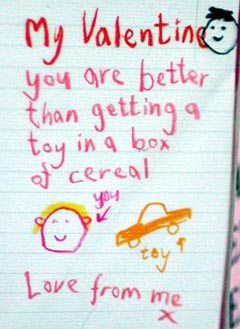 My Valentine
you are better
than getting a
toy in a box
of cereal
you
toy
Love from me
x